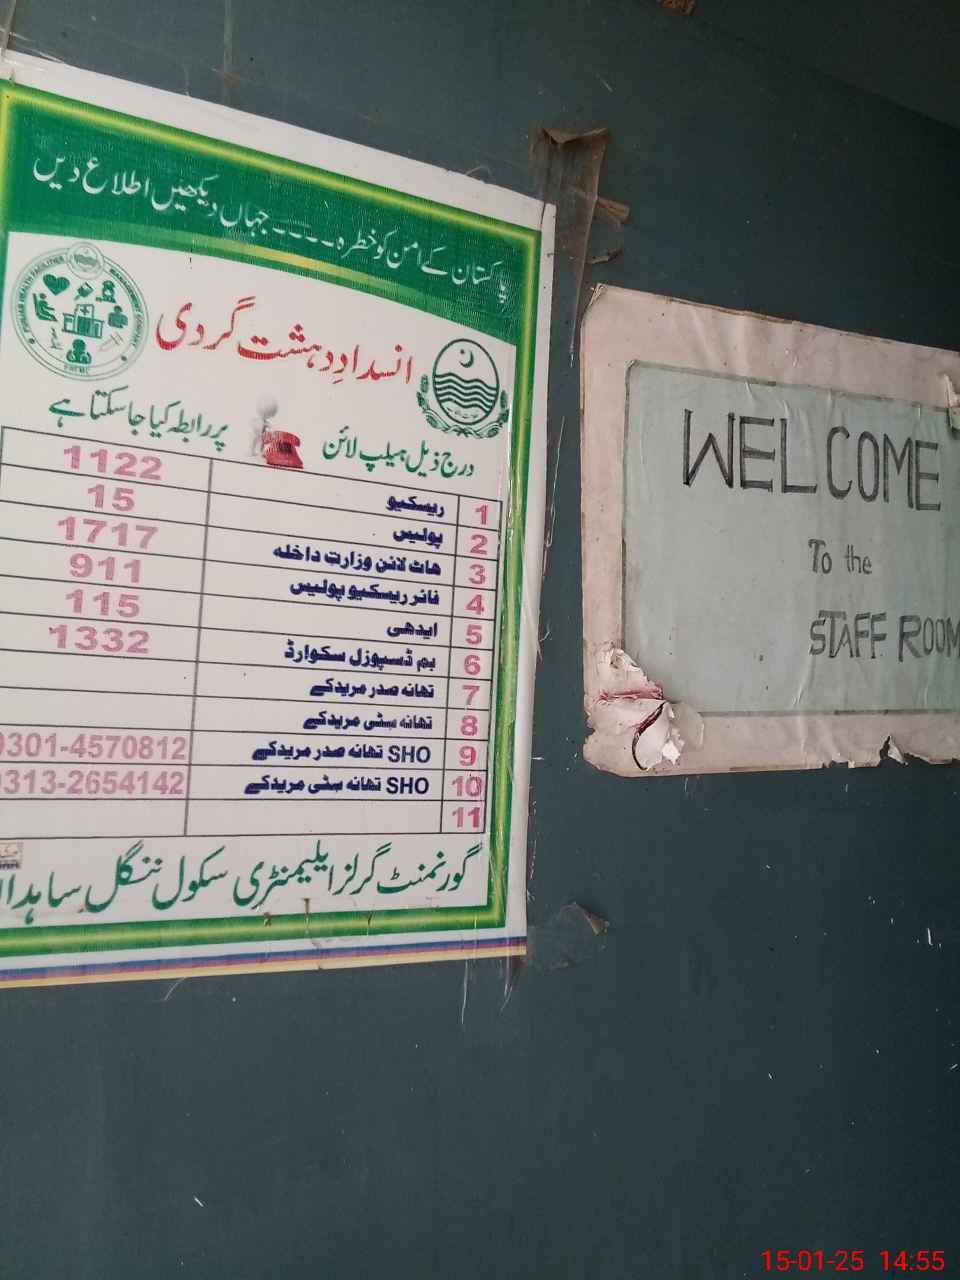 پاکستان کے امن کو خطرہ ۔۔۔۔ جہاں دیکھیں اطلاع دیں
PUNJAB HEALTH FACILITIES MANAGEMENT COMPANY
PHFMC
انسدادِ دہشت گردی
درج ذیل ہیلپ لائن پر رابطہ کیا جا سکتا ہے
1 ریسکیو 1122
2 پولیس 15
3 ھاٹ لائن وزارت داخلہ 1717
4 فائر ریسکیو پولیس 911
5 ایدھی 115
6 بم ڈسپوزل سکوارڈ 1332
7 تھانہ صدر مریدکے
8 تھانہ سٹی مریدکے
9 SHO تھانہ صدر مریدکے 0301-4570812
10 SHO تھانہ سٹی مریدکے 0313-2654142
11
گورنمنٹ گرلز ایلیمنٹری سکول ننگل
WELCOME
To the
STAFF ROOM
15-01-25 14:55